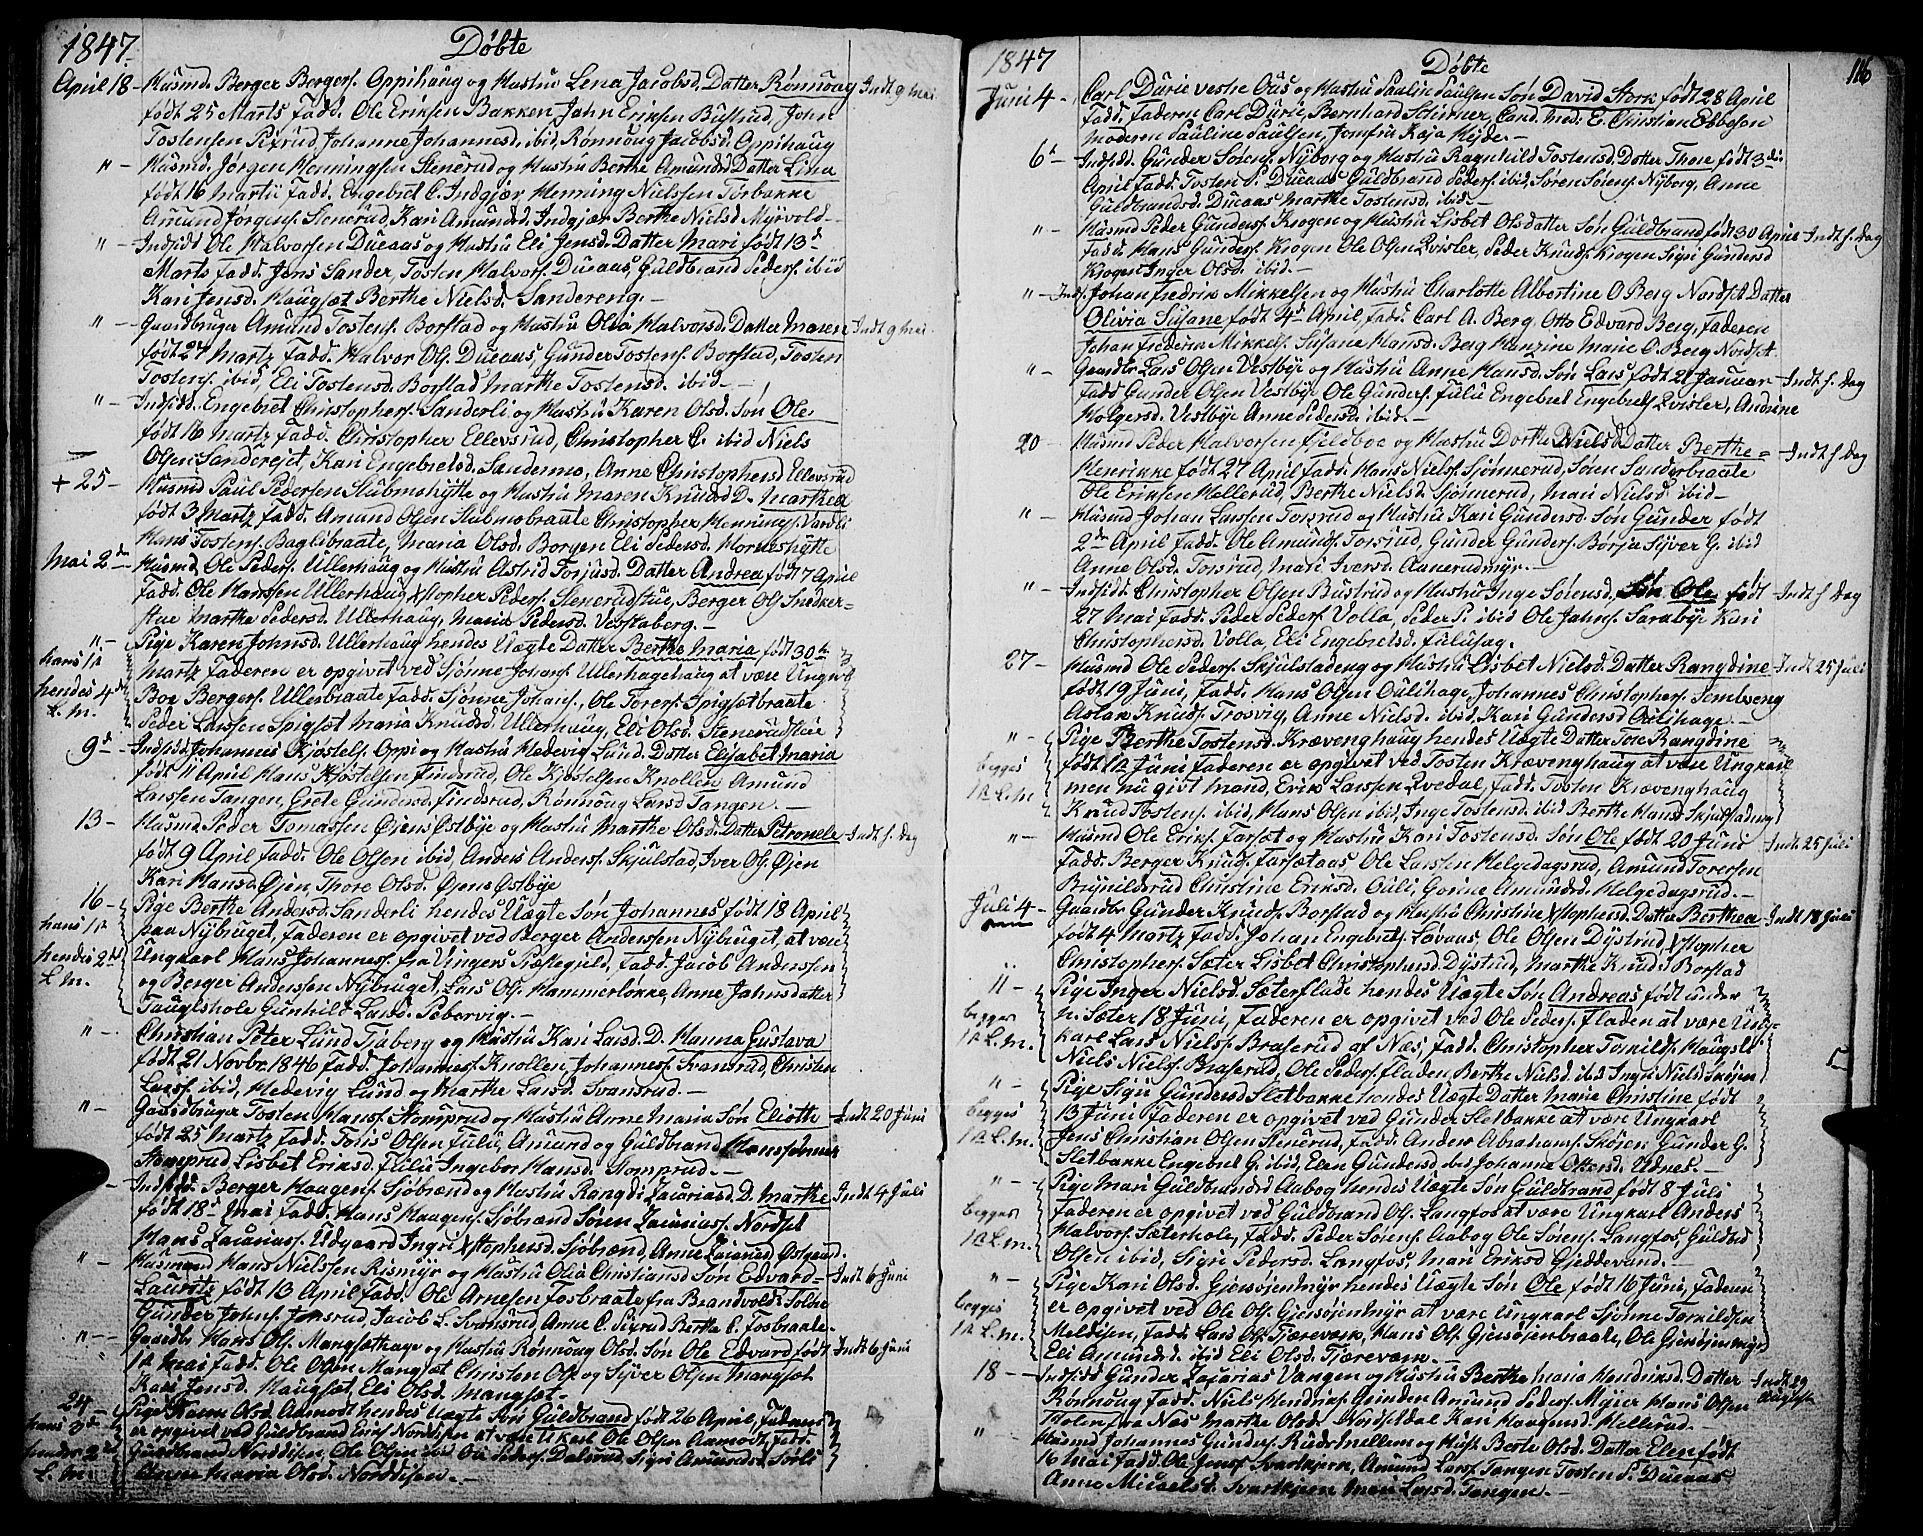 1847. Døbte
April 18 – Husmd. Berger Bergers. Oppihaug og Hustru Lena Jacobsd. Datter Rønnoug – Indt 9 Mai
født 25 Marts Fadd. Ole Eriksen Bakken, John Eriksen Bustrud, John
Tostensen Pixrud, Johanne Johannesd. ibid, Rønnoug Jacobsd. Oppihaug
" – Husmd. Jørgen Henningsen Stenerud og Hustru Berthe Amundsd Datter Lina
født 16 Martii Fadd. Engebret C. Indgjær Henning Nielssen Torbakke
Amund Jorgens. Stenerud Kari Amundsd. Indgjær Berthe Nielsd. Myrvold –
" – Indsidd. Ole Halvorsen Dueaas og Hustru Eli Jensd. Datter Mari født 13d
Marts Fadd. Jens Sander Tosten Halvors. Dueaas, Guldbrand Peders. ibid
Kari Jensd. Haugsæt Berthe Nielsd. Sandereng. –
" – Gaardbruger Amund Tostens. Borstad og Hustru Olia Halvorsd. Datter Maren – Indt 9 Mai
født 27 Martz Fadd. Halvor Ols. Dueaas, Gunder Tostens. Borstad, Tosten
Tostens. ibid, Eli Tostensd. Borstad Marthe Tostensd. ibid –
" – Indsidd. Engebret Christophers. Sanderli og Hustru Karen Olsd. Søn Ole
født 16 Martz Fadd. Christopher Ellevsrud, Christopher C. ibid Niels
Olsen Sanderejet, Kari Engebretsd. Sandermo, Anne Christophersd Ellevsrud
+ 25 – Husmd Paul Pedersen Stubmohytte og Hustru Maren Knudsd D. Marthea
født 3 Martz Fadd. Amund Olsen Stubmobraate Christopher Hennings. Vardli
Hans Tostens. Baglibraate, Maria Olsd. Borgen Eli Pedersd. Horneshytte
Mai 2den Husmd. Ole Peders. Ullerhaug og Hustru Astrid Torjusd. Datter Andrea født 7 April
Fadd. Ole Hanssen Ullerhaug Xstopher Peders. Stenerudstue, Berger Ols Snedker-
stue Marthe Pedersd. Ullerhaug, Maria Pedersd. Vesstaberg. –
" – Pige Karen Johnsd. Ullerhaug hendes Uægte Datter Berthe Maria født 30te
hans 1te
Martz Faderen er opgivet ved Sjønne Johans. Ullerhagehaug at være Ungk
hendes 4de
L. M.
Boe Bergers. Ullerbraate Fadd. Sjønne Johans., Ole Torers. Spigsætbraate
Peder Larssen Spigsæt Maria Knudsd. Ullerhaug, Eli Olsd. Stenerudstue
9d – Indsidd. Johannes Kjøstels. Oppi og Hustru Hedevig Lund. Datter Elisabet Maria
født 11 April Hans Kjøstelsen Findsrud, Ole Kjøstelsen Knollen Amund
Larssen Tangen, Grete Gundersd. Findsrud, Rønnoug Larsd Tangen. –
13 – Husmd. Peder Tomassen Øiens Østbye og Hustru Marthe Olsd. Datter Petronele – Indt s. Dag
født 9 April Fadd. Ole Olsen ibid, Anders Anders. Skjulstad, Iver Ols. Øjen
Kari Hansd. Øjen, Thore Olsd. Øjens Østbye
16 – Pige Berthe Andersd. Sanderli hendes Uægte Søn Johannes født 18 April
hans 1te
paa Nybruget, Faderen er opgivet ved Berger Anderssen Nybruget, at være
hendes 2det
Ungkarl Hans Johanness. fra Vingers Præstegield, Fadd. Jacob Anderssen
L. M.
og Berger Anderssen Nybruget, Lars Ols. Hammerløkke, Anne Jahnsdatter
Tauglshole Gunhild Larsd. Pebervig. –
" – Christian Peter Lund Tjaberg og Hustru Kari Larsd. D. Hanna Gustava
født 21 Novbr. 1846 Fadd. Johanness. Knollen, Johanness. Svansrud, Christen
Larss. ibid, Hedevig Lund og Marthe Larsd. Svansrud. –
" – Gaardbruger Tosten Hanss. Stomprud og Hustru Anne Maria Søn Elioth – Indt 20 Juni
født 25 Martz Fadd. Toris Olsen Fulu, Amund og Guldbrand Hanssønner
Stomprud Lisbet Eriksd. Fulu Ingebor Hansd. Stomprud. –
" – Indsidd. Berger Haagens. Sjøbrænd og Hustru Rangdi Zacariasd. D. Marthe – Indt 4 Juli
født 18d Mai Fadd. Hans Haagens. Sjøbrænd Søren Zacariass. Nordset
Hans Zacariass. Udgaard Ingri Xstophersd. Sjøbrænd, Anne Zacariasd Østgaard.
" – Husmand Hans Nielssen Rismyr og Hustru Olia Christiansd Søn Edvard = – Indt 6 Juni
Laurits født 13 April Fadd. Ole Arnesen Fosbraate fra Brandvold, Soldat
Gunder Johns. Jonsrud, Jacob L. Svansrud, Anne C. Pixrud Berthe C. Fosbraate.
" – Gaardbr. Hans Ols. Mangsæthage og Hustru Rønnoug Olsd. Søn Ole Edvard født – Indt 6 Juni
1te Mai Fadd. Ole Olsen Mangsæt Christen Ols. og Syver Olsen Mangsæt
Kari Jensd. Haugsæt, Eli Olsd. Mangsæt –
24 – Pige Karen Olsd. Aamodt hendes Uægte Søn Guldbrand født 26 April, Faderen
hans 3de
er opgivet ved Guldbrand Nordisen at være Ukarl Ole Olsen Aamodt, Fadd.
hendes 2det
Guldbrand Nordisen, Ole Olsen ibid Ole Peders. Dalsrud, Sigri Amundsd.
L. M.
Anne Maria Olsd. Nordisen. –
1847 Døbte 116
Juni 4 – Carl Durie vestre Ous og Hustru Pauline Paulsen Søn David Stork født 28 April
Fadd. Faderen Carl Durie, Bernhard Schirmer, Cand. Med. E. Christian Ebbesen
Moderen Pauline Paulsen, Jomfru Kaja Hejde –
6te – Indsidd. Gunder Sørens. Nyborg og Hustru Ragnhild Tostensd. Datter Thore født 3die
April Fadd. Tosten P. Dueaas Guldbrand Peders. ibid. Søren Sørens. Nyborg, Anne
Guldbrandsd. Dueaas Marthe Tostensd. ibid –
" – Husmd Peder Gunders. Krogen og Hustru Lisbet Olsdatter Søn Guldbrand født 30 April – Indt s. Dag
Fadd. Hans Gunders. Krogen Ole Olsen Qvisler, Peder Knuds. Krogen Sigri Gundersd
Krogen Inger Olsd. ibid. –
" – Inds. Johan Fredrik Mikkelsen og Hustru Charlotte Albertine O Berg Nordset Datter
Olivia Susane født 4d April, Fadd. Carl A. Berg, Otto Edvard Berg, Faderen
Johan Frederik Mikkels. Susane Hansd. Berg Hanzine Marie O. Berg Nordset
" – Gaardbr. Lars Olsen Vestbye og Hustru Anne Hansd. Søn Lars født 21 Januar – Indt s. Dag
Fadd. Gunder Olsen Vestbye, Ole Gunders. Fulu Engebret Engebrets Qvisler, Andrine
Holgersd. Vestbye Anne Pedersd. ibid. –
20 – Husmd Peder Halvorsen Fjeldboe og Hustru Dorthe Nielsd Datter Berthe= – Indt s. Dag
Henrikke født 27 April Fadd. Hans Niels. Sjønnerud, Søren Sanderbraate
Ole Eriksen Hellerud, Berthe Nielsd. Sjønnerud, Mari Nielsd. ibid –
" – Husmd Johan Larssen Torsrud og Hustru Kari Gundersd. Søn Gunder født
2den April Fadd. Ole Amunds. Torsrud, Gunder Gunders. Børju Syver G. ibid
Anne Olsd. Torsrud, Mari Iversd. Aanerudmyr. –
" – Indsidd. Christopher Olsen Bustrud og Hustru Inge Sørensd, Søn Ole født – Indt s Dag
27 Mai Fadd. Peder Peders. Volla, Peder P. ibid Ole Jahns. Sarabye Kari
Christophersd. Volla Eli Engebretsd. Fulusag.
27 – Husmd Ole Peders. Skjulstadeng og Hustru Lisbet Nielsd. Datter Rangdine – Indt 25 Juli
født 19 Juni, Fadd. Hans Olsen Oulihage, Johannes Christophers. Semtseng
Aslak Knuds. Trosvig, Anne Nielsd. ibid, Kari Gundersd Oulihage. –
" – Pige Berthe Tostensd. Krævenghaug hendes Uægte Datter Tore Rangdine
begges
født 1te Juni Faderen er opgivet ved Tosten Krævenghaug at være Ungkarl
1te L. M.
men nu givt Mand, Erik Larssen Qvedal, Fadd. Tosten Krævenghaug
Knud Tostens. ibid, Hans Olsen ibid, Inge Tostensd. ibid Berthe Hansd Skjulstadeng
" – Husmd Ole Eriks. Farsæt og Hustru Kari Tostensd. Søn Ole født 20 Juni – Indt 25 Juli
Fadd. Berger Knuds. Farsetaas Ole Larssen Helgedagsrud, Amund Torersen
Brynildsrud Christine Eriksd. Ouli, Gorine Amundsd. Helgedagsrud. –
Juli 4 – Gaardbr. Gunder Knuds. Borstad og Hustru Christine Xstophersd. Datter Berthea – Indt 18 Juli
født 4 Martz Fadd. Johan Engebrets. Løvaas, Ole Olsen Dystrud Xstopher
Christophers. Sæter Lisbet Christophersd. Dystrud, Marthe Knudsd Borstad
11 – Pige Inger Nielsd. Sæterflade hendes Uægte Søn Andreas født under
begges
n. Sæter 18 Juni, Faderen er opgivet ved Ole Peders. Fladen at være Ung-
1te L. M.
karl Lars Niels. Braserud af Næs, Fadd. Christopher Torkilds. Haugsli
Niels Niels. Braserud, Ole Peders. Fladen Berthe Nielsd. ibid Ingri Nielsd Skøjen
" – Pige Sigri Gundersd Sletbakke hendes Uægte Datter Marie Christine født
begges
13 Juni Faderen er opgivet ved Gunder Sletbakke at være Ungkarl
1te L. M.
Jens Christian Olsen Stenerud, Fadd. Andrew Abrahams. Skøien, Gunder G.
Sletbakke Engebret G. ibid, Elen Gundersd. ibid Johanne Ottersd. Udnes. –
" – Pige Mari Guldbrandsd Aabog hendes Uægte Søn Guldbrand født 8 Juli
begges
Faderen er opgivet ved Guldbrand Ols. Langfos at være Ungkarl Anders
1te L. M.
Halvors. Sæterhole, Fadd. Peder Sørens. Aabog Ole Sørens. Langfos, Guldbd
Olsen ibid, Sigri Pedersd. Langfos, Mari Eriksd Gjeddevand. –
" – Pige Kari Olsd. Gjensøjenmyr hendes Uægte Søn Ole født 16 Juni, Faderen
begges
er opgivet ved Ole Ols. Gjensøjenmyr at være Ungkarl Sjønne Torkildsen
1te L. M.
Meldisen, Fadd. Lars Ols. Tjærevasn, Hans Ols. Gjensøjenbraate, Ole Gjensøjenmyr
Eli Amundsd. ibid Eli Olsd. Tjærevasn. –
18 – Indsidd Gunder Zacarias Vangen og Hustru Berthe Maria Hendriksd. Datter – Indt 29
August
Rønnoug Fadd. Niels Hendriks. Grinden Amund Peders. Myrer Hans Olsen
Holen fra Næs Marthe Olsd. Nordsetdal Kari Haagensd. Hellerud. –
" – Husmd Johannes Gunders. Rudsmellem og Hust. Berte Olsd. Datter Elen født
16 Mai Fadd. Ole Jonss. Svartkjern, Amund Larss. Tangen Tosten P. Dueaas
Anne Micaelsd. Svartkjern Mari Larsd. Tangen. –